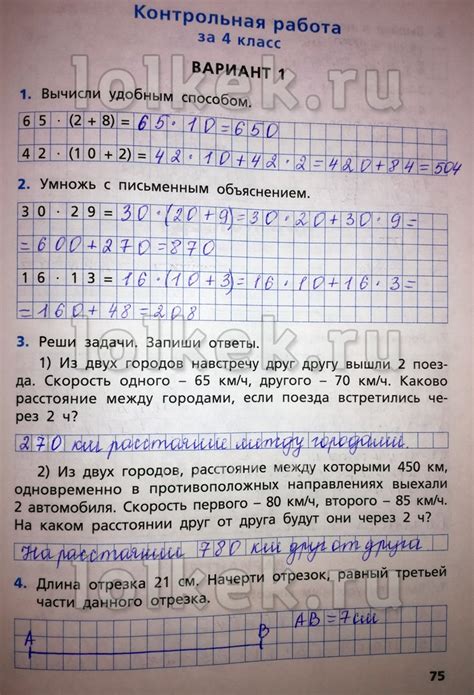 Контрольная работа
за 4 класс
ВАРИАНТ 1
1. Вычисли удобным способом.
65 · (2 + 8) = 65 · 10 = 650
42 · (10 + 2) = 42 · 10 + 42 · 2 = 420 + 84 = 504
2. Умножь с письменным объяснением.
30 · 29 = 30 · (20 + 9) = 30 · 20 + 30 · 9 =
= 600 + 270 = 870
16 · 13 = 16 · (10 + 3) = 16 · 10 + 16 · 3 =
= 160 + 48 = 208
3. Реши задачи. Запиши ответы.
1) Из двух городов навстречу друг другу вышли 2 поез-
да. Скорость одного – 65 км/ч, другого – 70 км/ч. Каково
расстояние между городами, если поезда встретились че-
рез 2 ч?
270 км расстояние между городами.
2) Из двух городов, расстояние между которыми 450 км,
одновременно в противоположных направлениях выехали
2 автомобиля. Скорость первого – 80 км/ч, второго – 85 км/ч.
На каком расстоянии друг от друга будут они через 2 ч?
На расстоянии 780 км друг от друга
4. Длина отрезка 21 см. Начерти отрезок, равный третьей
части данного отрезка.
A B AB = 7 см
75
lolkek.ru
lolkek.ru
lolkek.ru